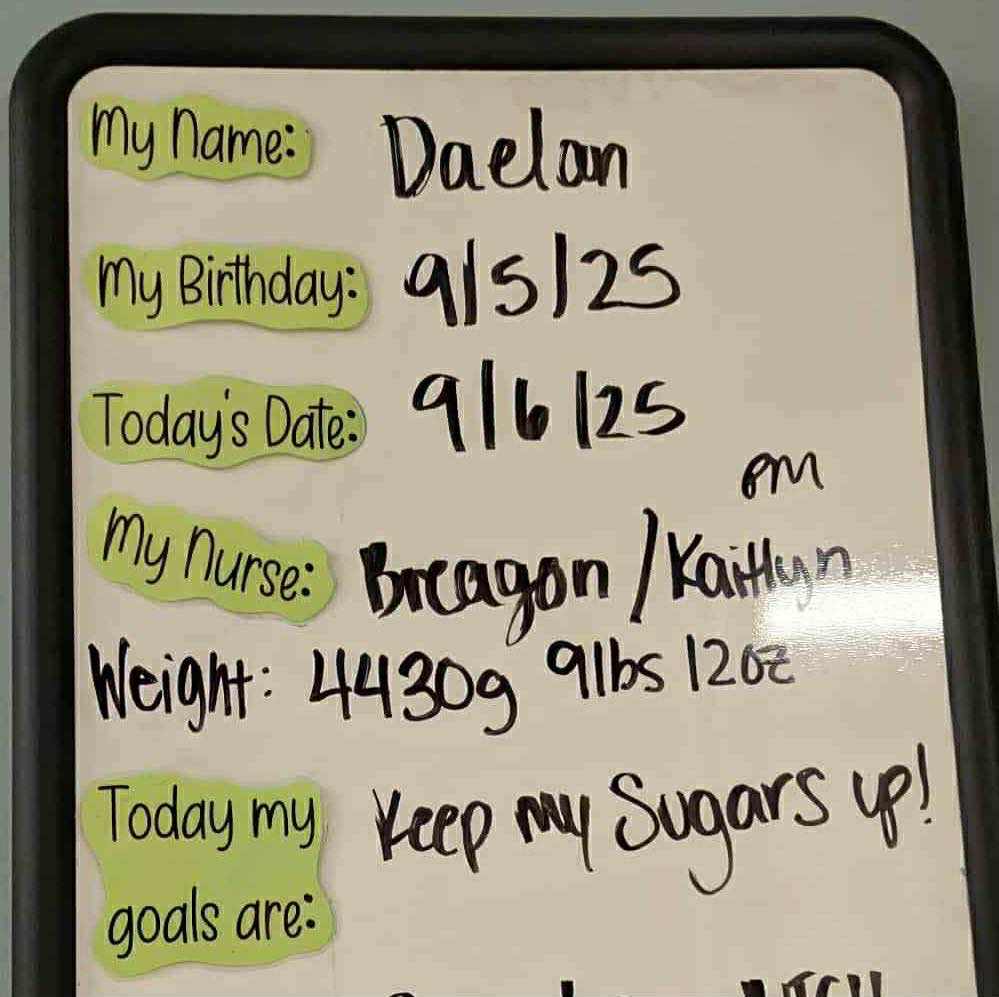 My Name: Daelan
My Birthday: 9/5/25
Today's Date: 9/6/25
PM
My Nurse: Breagan / Kaitlyn
Weight: 4430g 9lbs 12oz
Today my goals are: Keep my Sugars up!